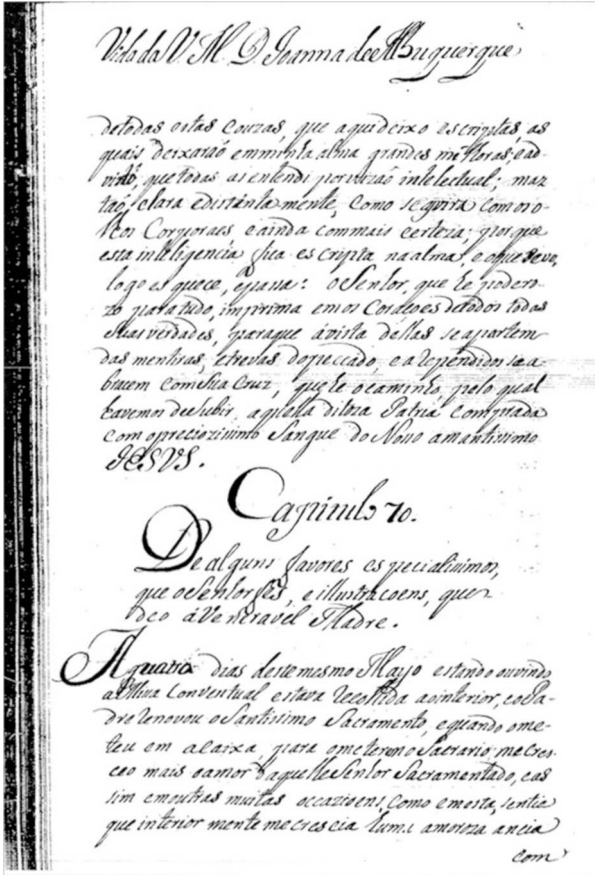 Vida da V. M. D. Joanna de Albuquerque
de todas estas couzas, que aqui deixo escriptas, as
quais deixarão em minha alma grandes melhoras: e ad
virto, que todas as entendi por vizão intelectual; mas
tão clara e distintamente, como se o vira com os o-
lhos Corporaes e ainda com mais certeza; porque
esta inteligencia fica escripta na alma, e o que se ve,
logo esquece, e passa: o Senhor, que he podero-
zo para tudo, imprima em os Corações de todos todas
suas verdades, para que á vista dellas se apartem
das mentiras, e trevas do peccado, e arependidos se a-
bracem com Sua Cruz, que he o caminho, pelo qual
havemos de subir, a quella ditoza Patria comprada
com o preciozissimo Sangue do Nosso amantissimo
JESVS.
Capitulo 70.
De alguns favores especialissimos,
que o Senhor fes, e illustracoens, que
deo á Veneravel Madre.
A quatro dias deste mesmo Mayo estando ouvindo
a Missa Conventual estava recolhida ao interior, e o Pa-
dre renovou o Santissimo Sacramento, e quando o me-
teu em a caixa, para o meter em o Sacrario, me cres-
ceo mais o amor daquelle Senhor Sacramentado, e as
sim em outras muitas occazioens, como em esta, sentia
que interior mente me crescia huma amoroza ancia
com